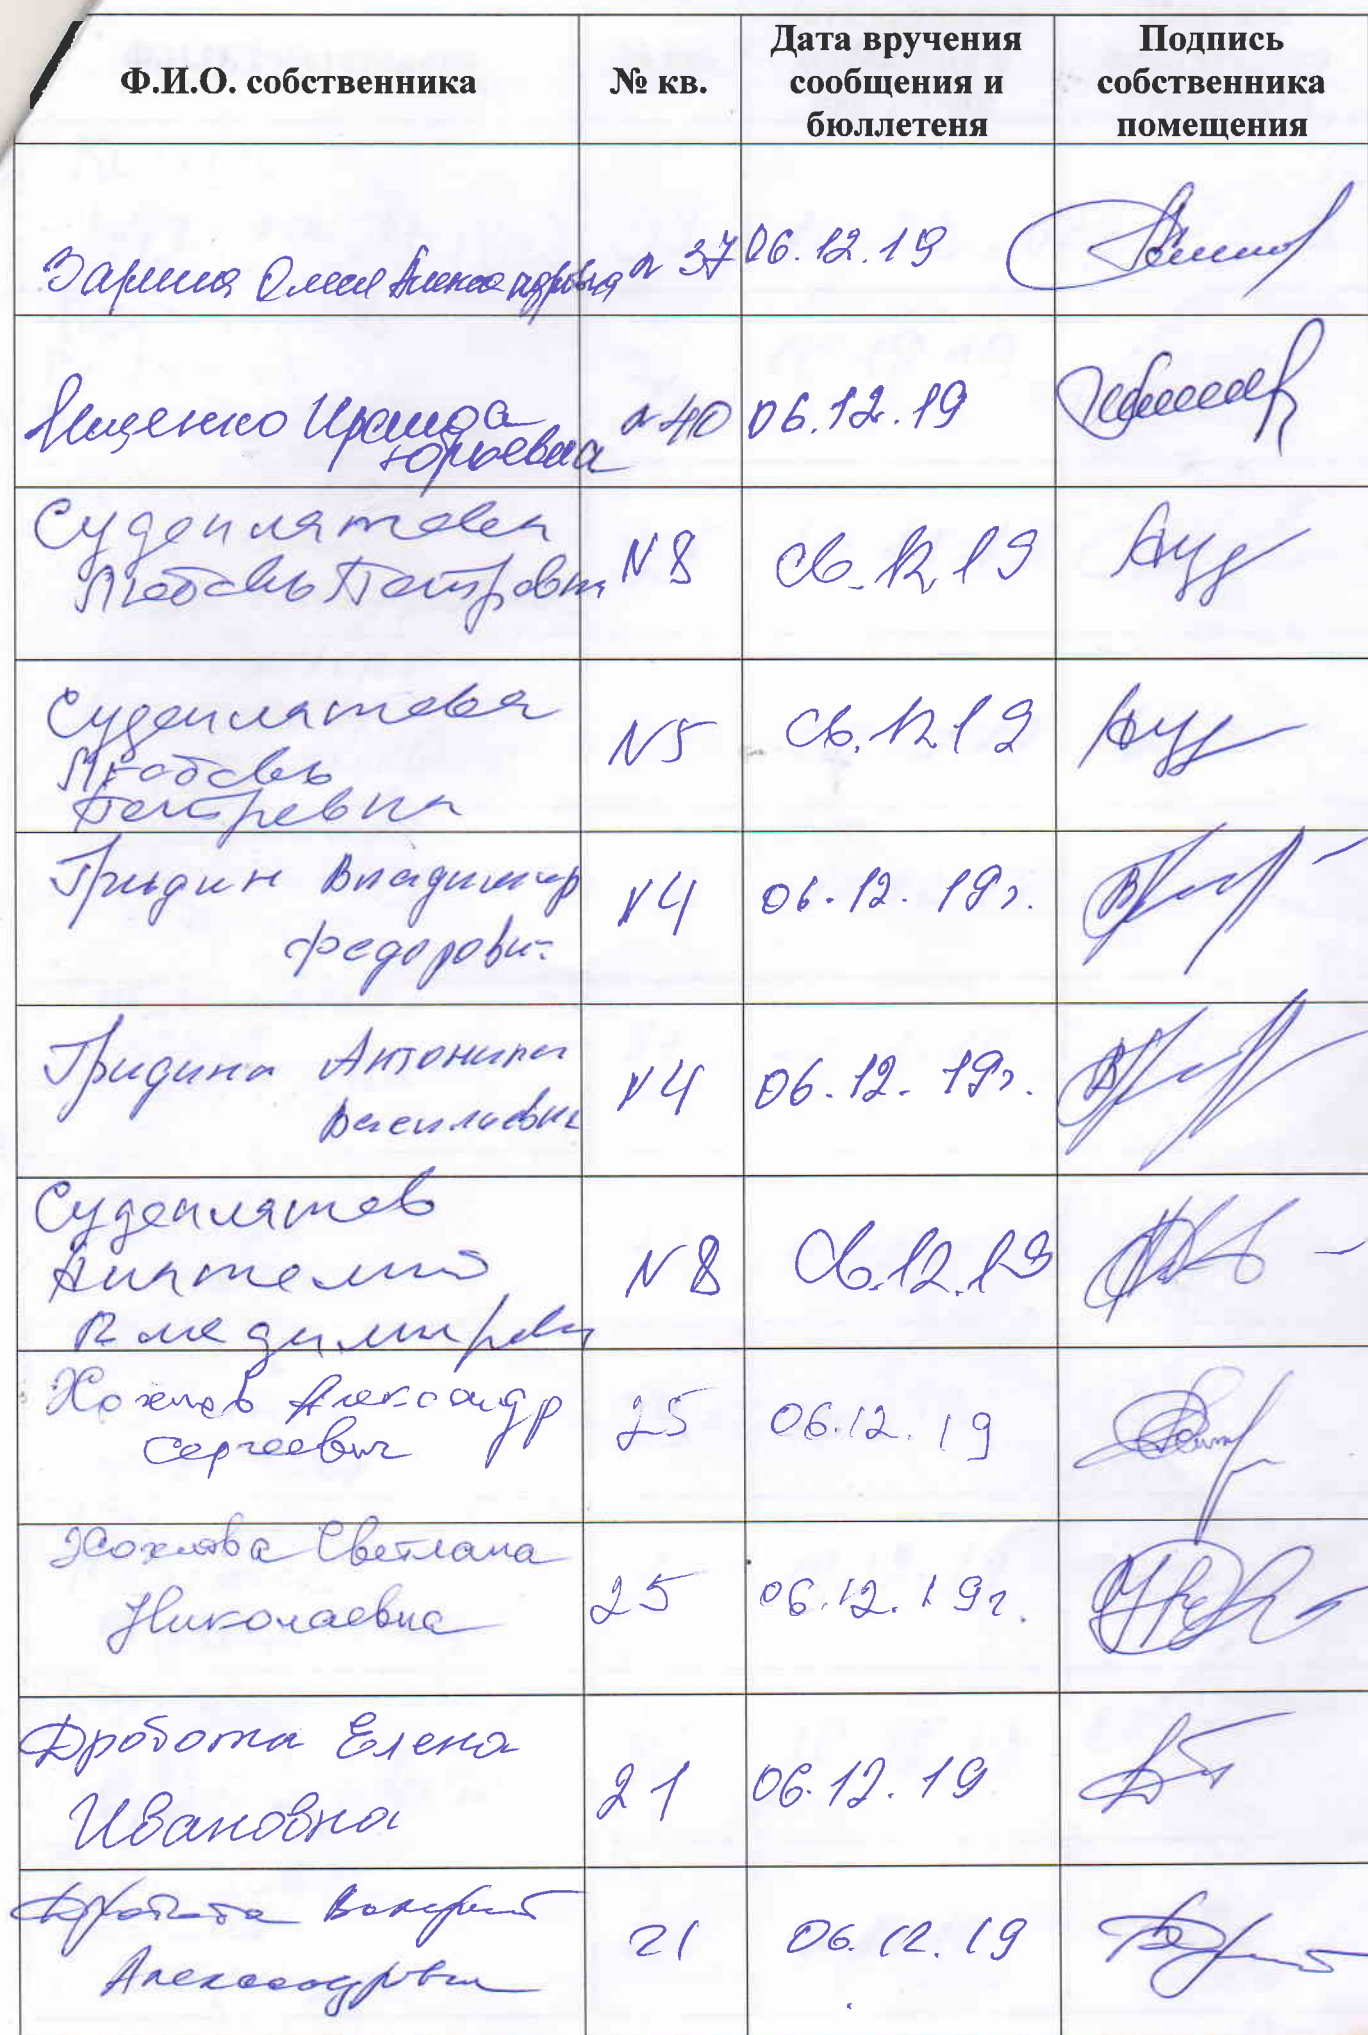 Ф.И.О. собственника
№ кв.
Дата вручения
сообщения и
бюллетеня
Подпись
собственника
помещения
Зарина Олеся Александровна
37
06.12.19
Ищенко Ираида
Юрьевна
40
06.12.19
Судоплатова
Любовь Петровна
N8
06.12.19
Судоплатова
Любовь
Петровна
N5
06.12.19
Гридин Владимир
Федорович
N4
06.12.19г.
Гридина Антонина
Васильевна
N4
06.12.19г.
Судоплатов
Анатолий
Владимирович
N8
06.12.19
Хохлов Александр
Сергеевич
25
06.12.19
Хохлова Светлана
Николаевна
25
06.12.19г.
Дробота Елена
Ивановна
21
06.12.19
Дробота Валерий
Александрович
21
06.12.19